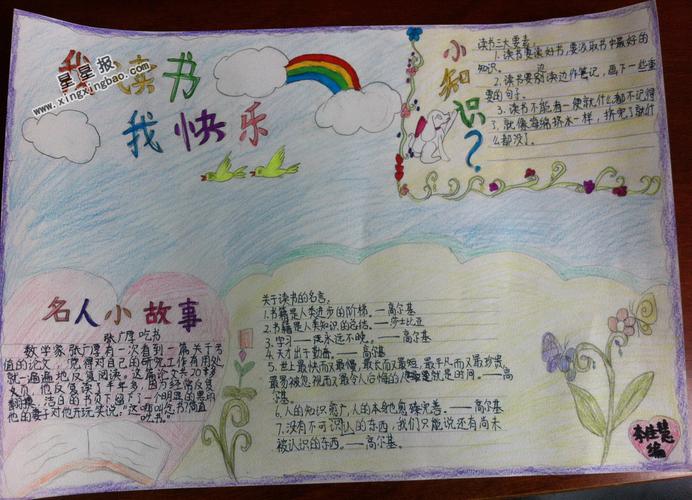 我读书
我快乐
星星报
www.xingxingbao.com
小知识？
读书三大要素：
1.读书要读好书，要汲取书中最好的
知识。
2.读书要别读边作笔记，画下一些重
要的句子。
边
3.读书不能看一便就什么都不记得
了，就像海绵挤水一样，挤完了就什
么都没了。
名人小故事
张广厚吃书
数学家张广厚有一次看到一篇关于亏
值的论文，觉得对自己的研究工作有用处
就一遍遍地反复阅读。这篇论文共20多
页，他反反复复读了半年多。因为经常反复
翻摸，洁白的书页上留下了一个明显的黑印
他的妻子对他开玩笑说，"这哪叫念书啊，简直
吃书。"
关于读书的名言：
1.书籍是人类进步的阶梯。——高尔基
2.书籍是人类知识的总结。——莎士比亚
3.学习——永远不晚。——高尔基
4.天才出于勤奋。——高尔基
5.世上最快而又最慢，最长而又最短，最平凡而又最珍贵，
最易被忽视而又最令人后悔的就是时间。——高
尔基。
6.人的知识愈广，人的本身也愈臻完善。——高尔基
7.没有不可认识的东西，我们只能说还有尚未
被认识的东西。——高尔基
李佳慧
编